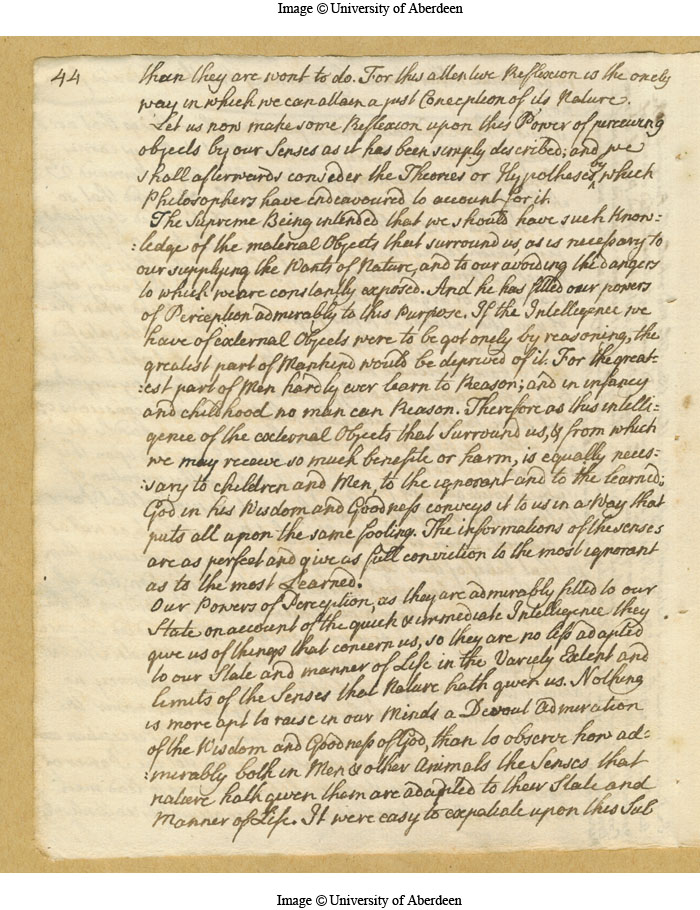 Image © University of Aberdeen
44
than they are wont to do. For this attentive Reflexion is the onely
way in which we can attain a just Conception of its Nature.
Let us now make some Reflexion upon this Power of perceiving
objects by our Senses as it has been simply described; and we
shall afterwards consider the Theories or Hypotheses by which
Philosophers have endeavoured to account for it.
The Supreme Being intended that we should have such Know-
:ledge of the material Objects that surround us, as is necessary to
our supplying the Wants of Nature, and to our avoiding the dangers
to which we are constantly exposed. And he has fitted our powers
of Perception admirably to this Purpose. If the Intelligence we
have of external Objects were to be got onely by reasoning, the
greatest part of Mankind would be deprived of it. For the great-
:est part of Men hardly ever learn to Reason; and in infancy
and childhood no man can Reason. Therefore as this intelli:
gence of the external Objects that Surround us, & from which
we may receive so much benefite or harm, is equally neces-
:sary to children and Men, to the ignorant and to the learned;
God in his Wisdom and Goodness conveys it to us in a Way that
puts all upon the same footing. The informations of the senses
are as perfect and give as full conviction to the most ignorant
as to the most Learned.
Our Powers of Perception, as they are admirably fitted to our
State on account of the quick & immediate Intelligence they
give us of things that concern us, so they are no less adapted
to our State and manner of Life in the Variety Extent and
limits of the Senses that Nature hath given us. Nothing
is more apt to raise in our Minds a Devout Admiration
of the Wisdom and Goodness of God, than to observe how ad-
:mirably both in Men & other Animals the Senses that
nature hath given them are adapted to their State and
Manner of Life. It were easy to expatiate upon this Sub
Image © University of Aberdeen